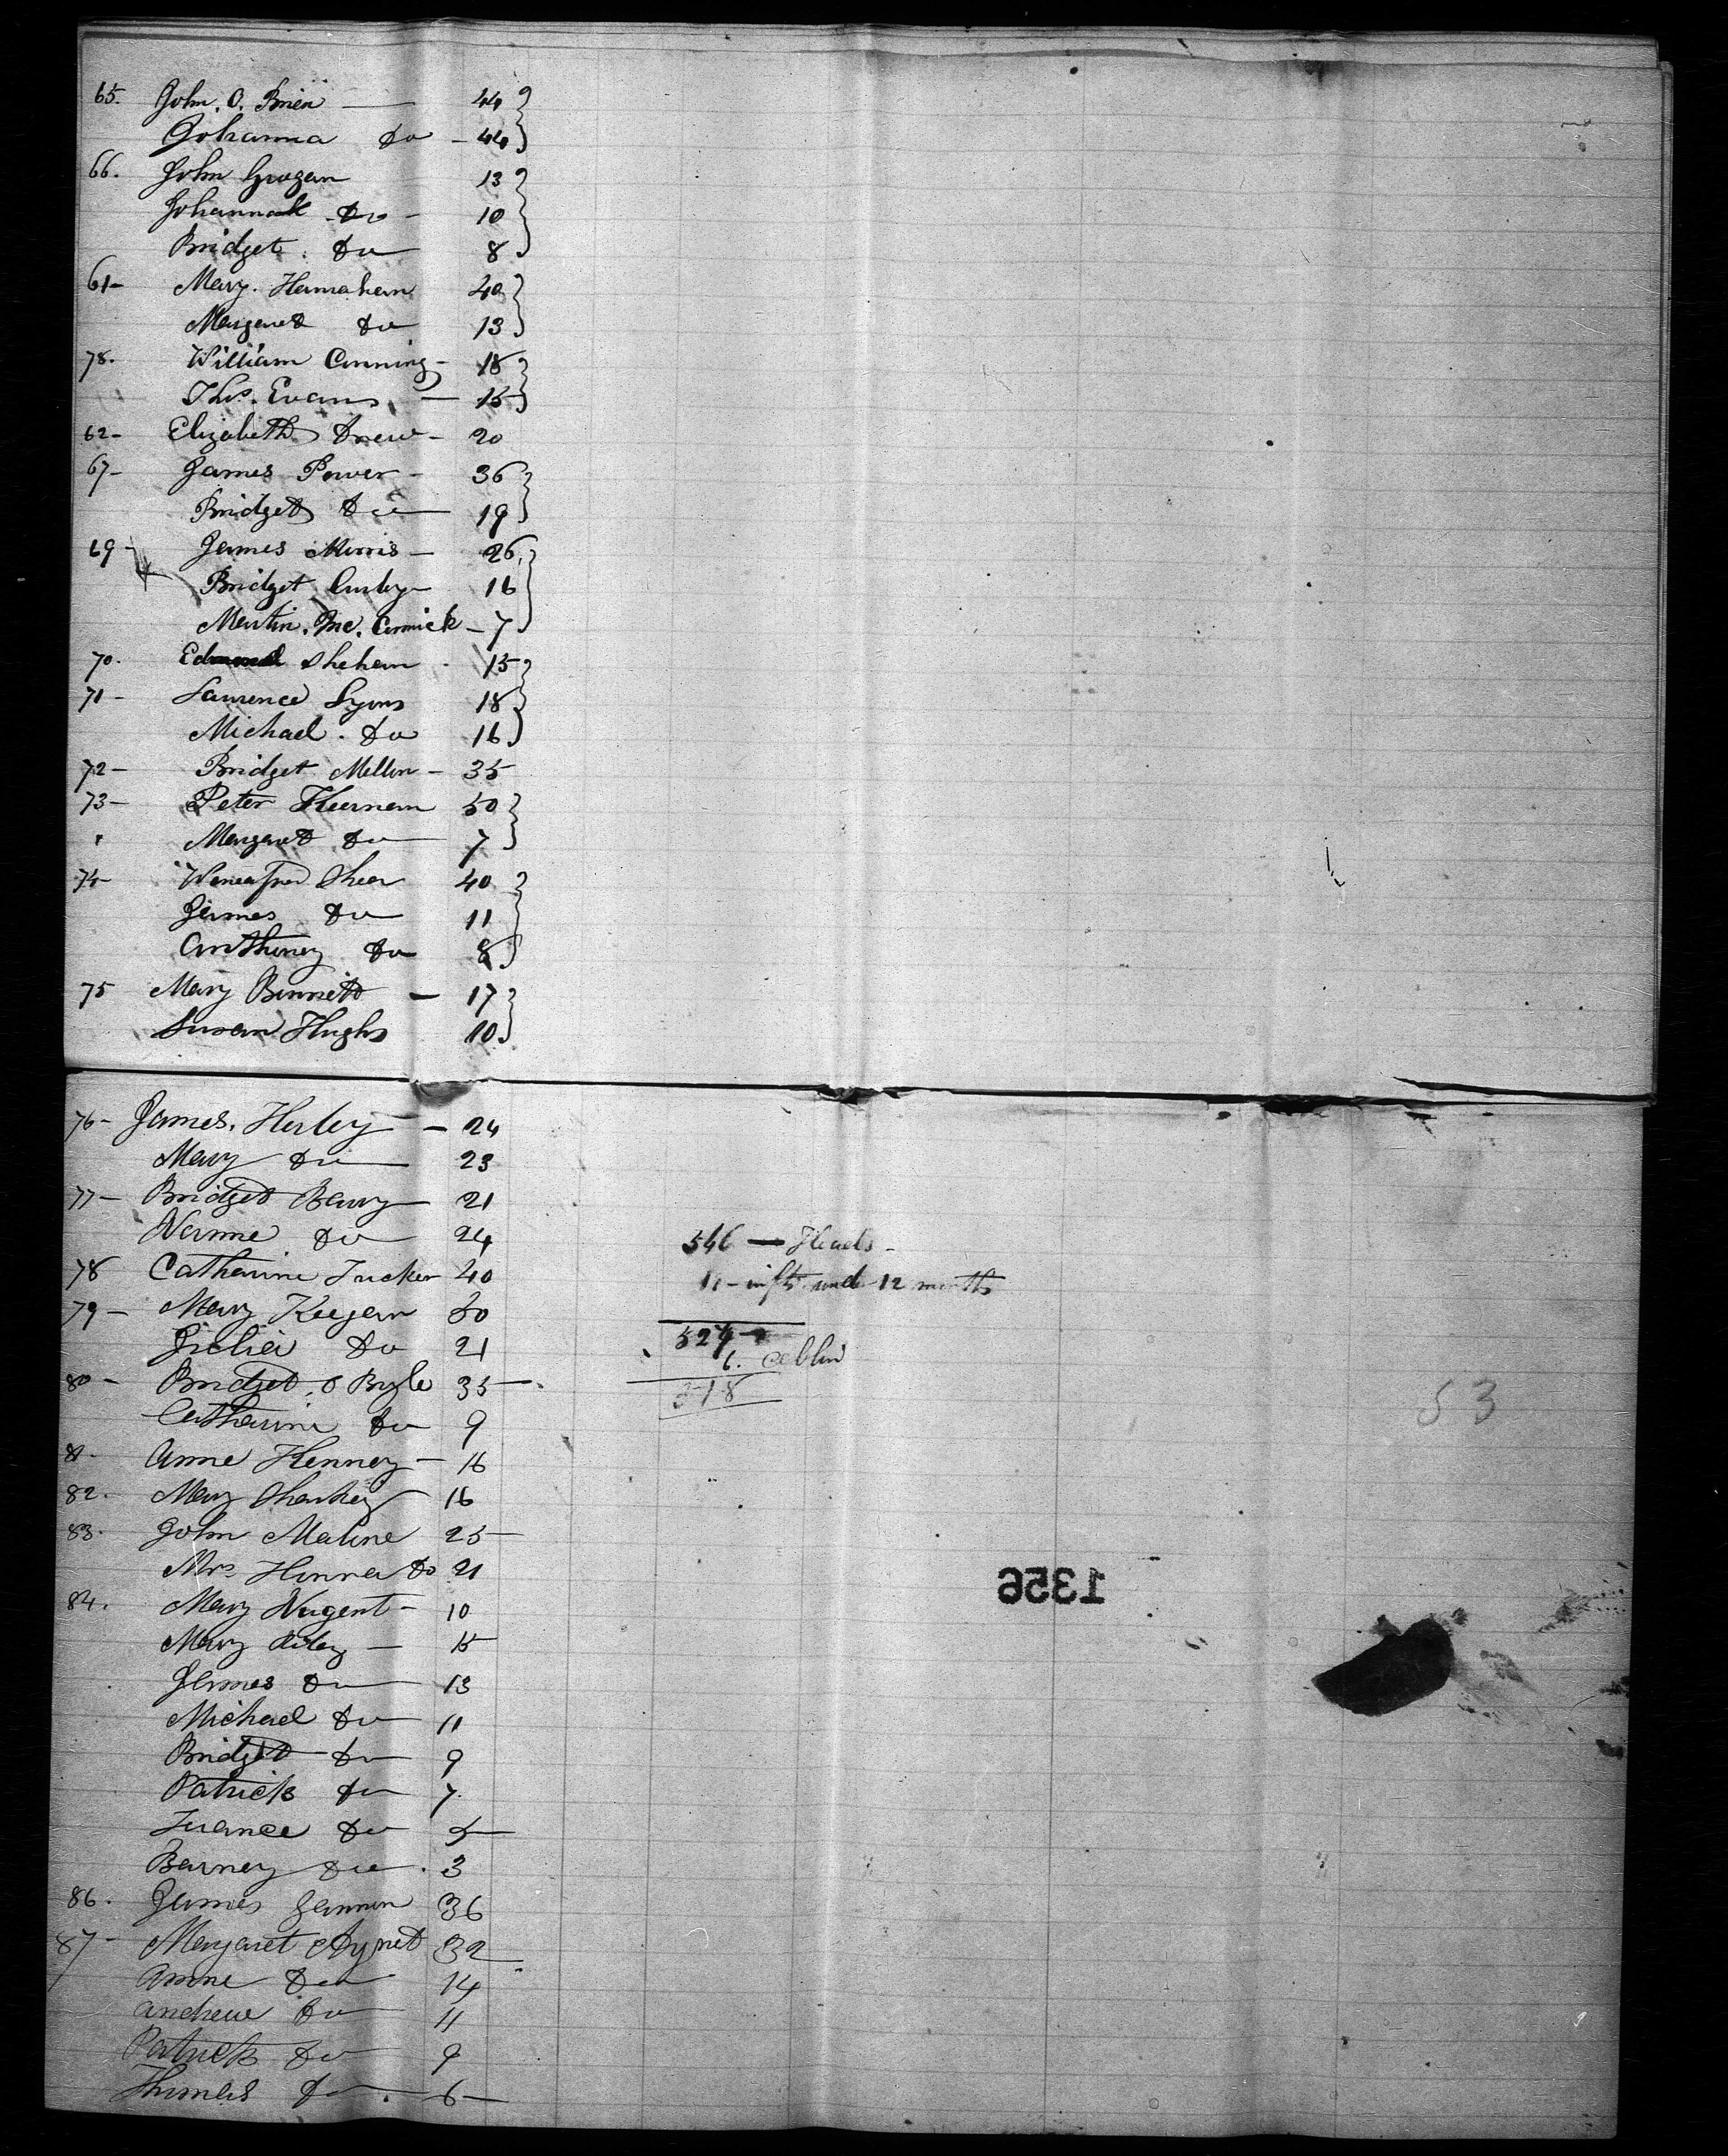 65. John. O. Brien — 44
Johanna Do - 44
66. John Grogan 13
Johannah Do - 10
Bridget. Do 8
61- Mary. Hannahan 40
Margaret Do 13
78. William Cunning - 18
Thos. Evans — 15
62- Elizabeth Drew - 20
67- James Power - 36
Bridget Do 19
69- James Morris - 26
Bridget Curley - 16
Martin. Mc. Cormick - 7
70. Edmond Shehan - 15
71- Laurence Lyons 18
Michael. Do 16
72- Bridget Mellon - 35
73- Peter Keernan 50
Margaret Do 7
74- Shea 40
James Do 11
Anthoney Do 8
75 Mary Bennett — 17
Susan Hughs 10
76- James. Herley — 24
Mary Do 23
77- Bridget Barry 21
Do 24
78 Catharine Tucker 40
79- Mary Keegan 50
Julia Do 21
80- Bridget. O Byle 35
Catharine Do 9
81. Anne Kenney - 16
82. Mary Sharkey 16
83. John Malone 25
Mrs. Do 21
84. Mary Nugent - 10
Mary Riley — 15
James Do 13
Michael Do 11
Bridget Do 9
Patrick Do 7
Do 5
Barney Do. 3
86. James Gannon 36
87- Margaret 32
Anne Do 14
Andrew Do 11
Patrick Do 9
Thomas Do. 6
546 — Heads -
infts under 12 months
529
6. Cabbin
518
53
1356